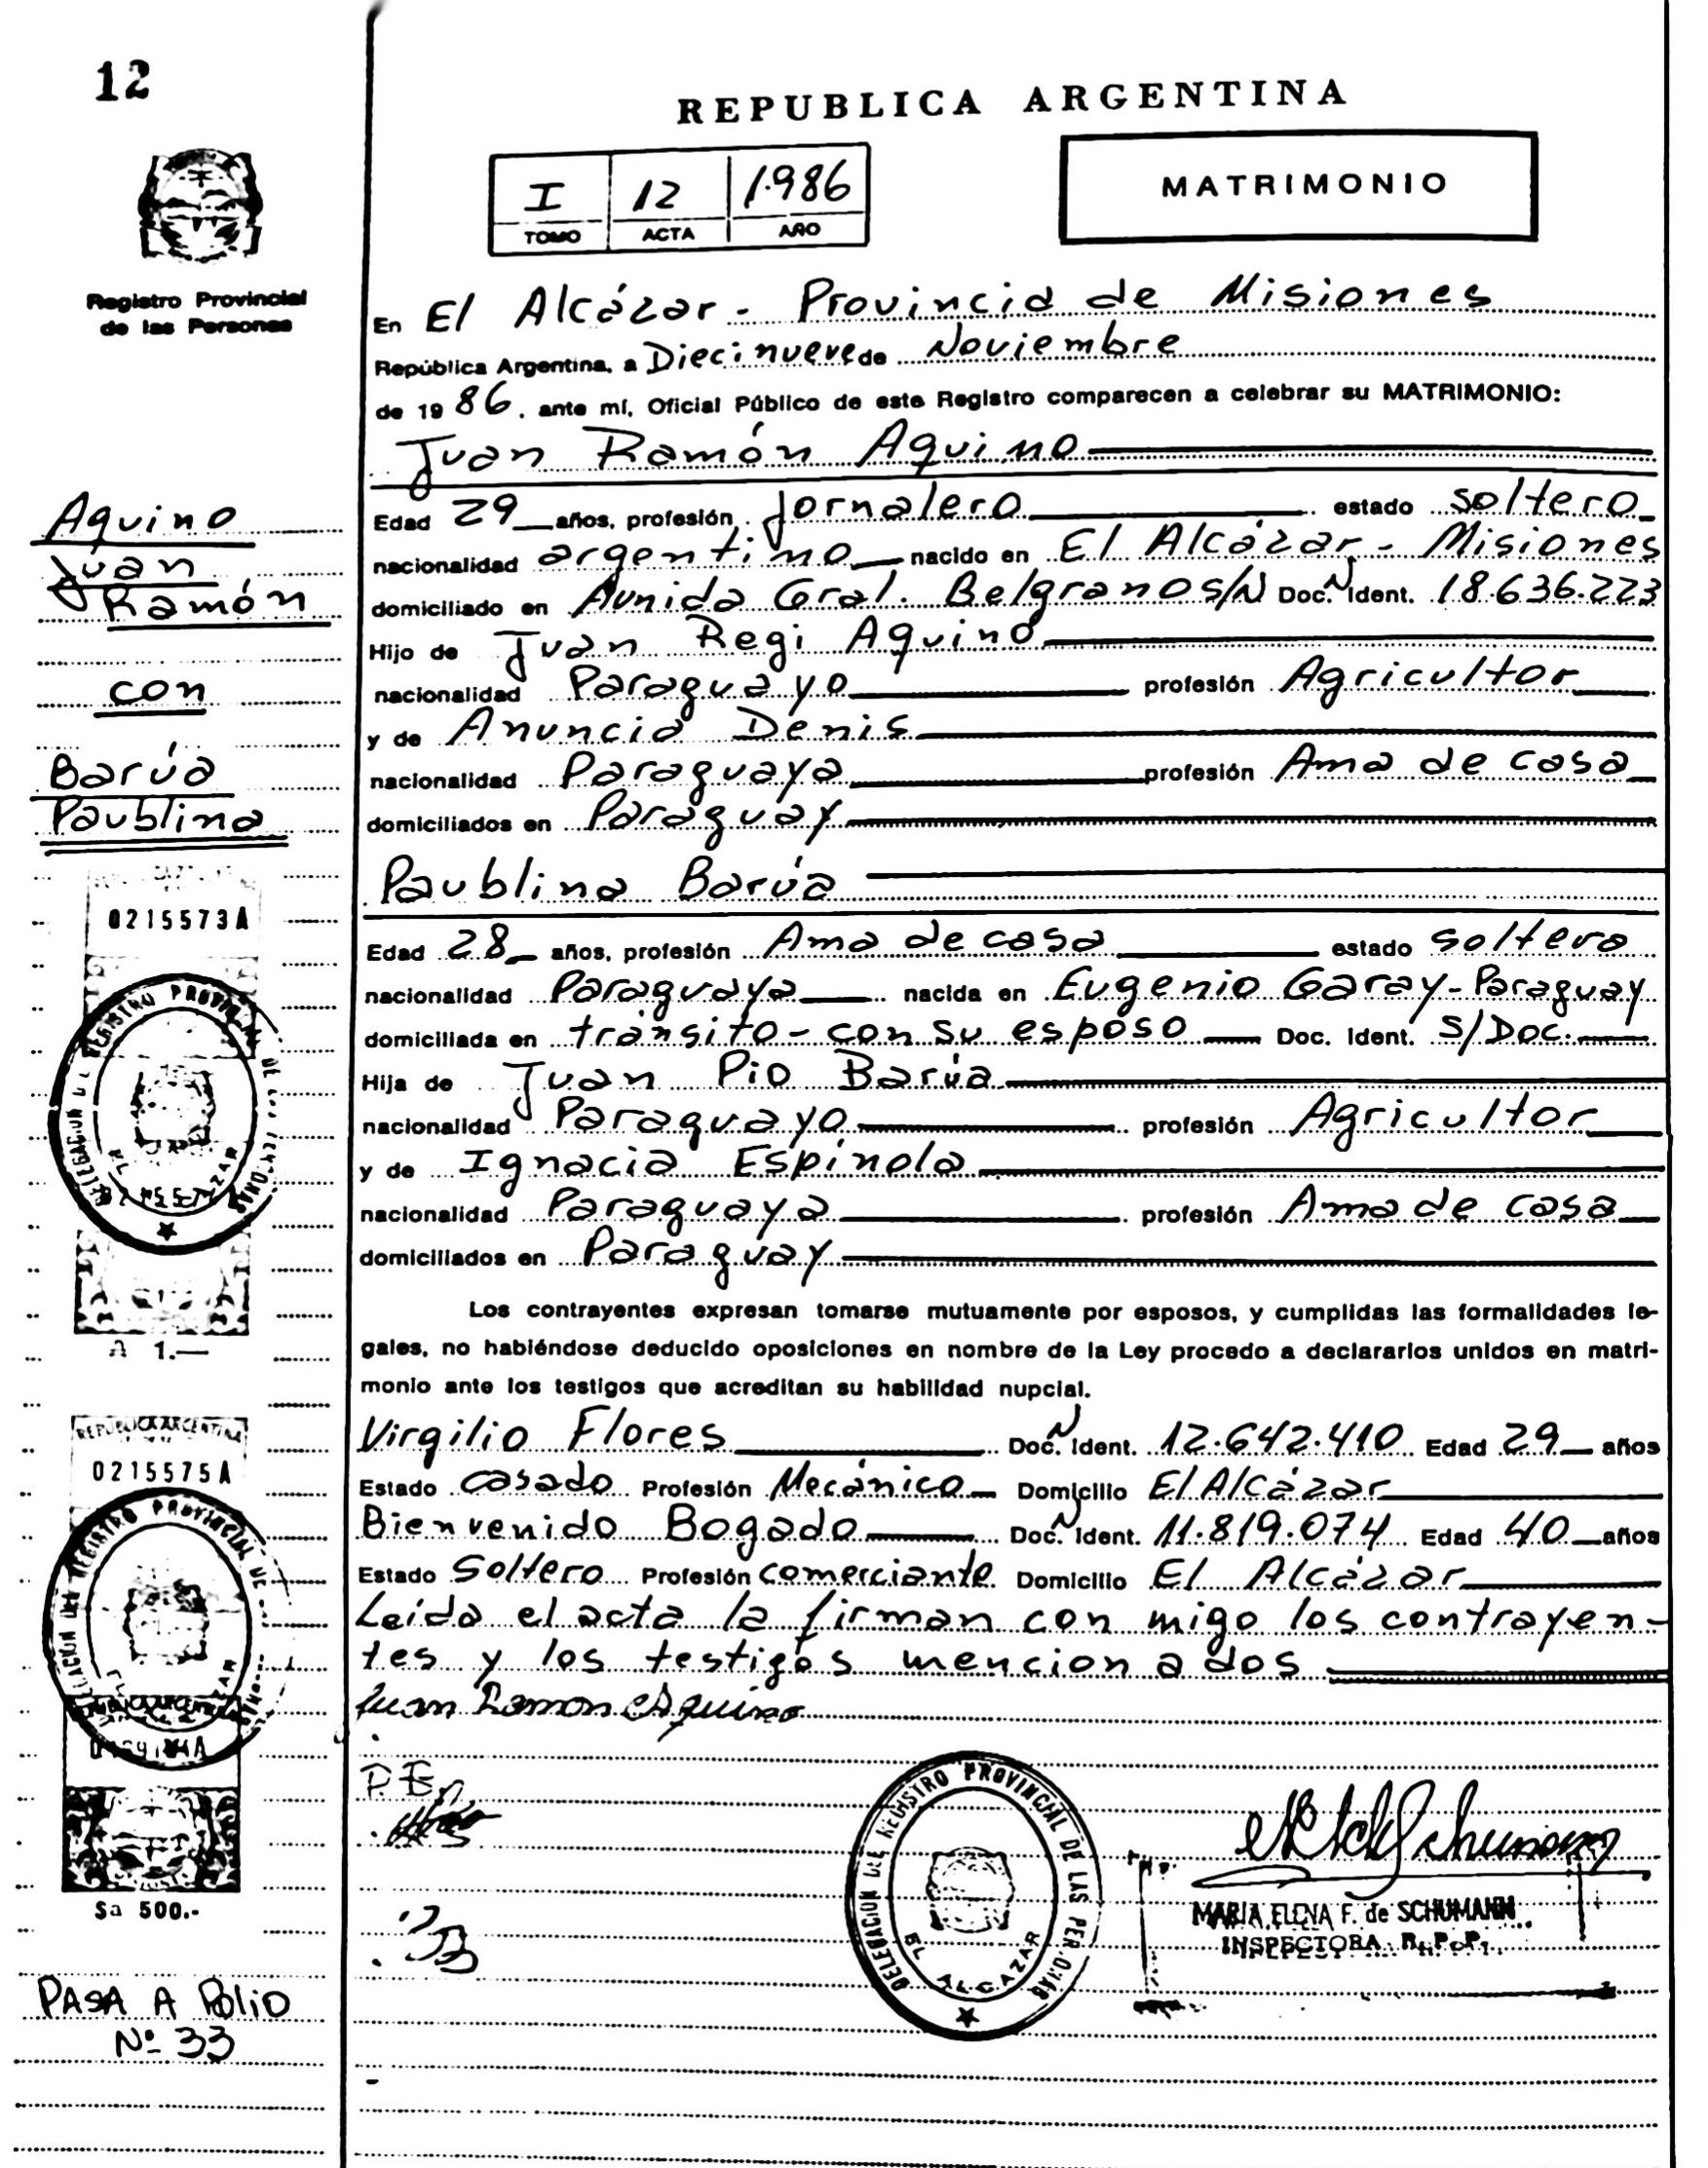 12
REPUBLICA ARGENTINA
I 12 1.986
TOMO ACTA AÑO
MATRIMONIO
Registro Provincial
de las Personas
En El Alcázar - Provincia de Misiones
República Argentina, a Diecinueve de Noviembre
de 1986. ante mí, Oficial Público de este Registro comparecen a celebrar su MATRIMONIO:
Juan Ramón Aquino
Edad 29 años, profesión jornalero estado soltero
nacionalidad argentino nacido en El Alcázar - Misiones
domiciliado en Avnida Gral. Belgrano s/N Doc. N Ident. 18.636.223
Hijo de Juan Regi Aquino
nacionalidad Paraguayo profesión Agricultor
y de Anuncia Denis
nacionalidad Paraguaya profesión Ama de casa
domiciliados en Paraguay
Paublina Barúa
Edad 28 años, profesión Ama de casa estado soltera
nacionalidad Paraguaya nacida en Eugenio Garay-Paraguay
domiciliada en tránsito - con su esposo Doc. Ident. S/Doc.
Hija de Juan Pio Barúa
nacionalidad Paraguayo profesión Agricultor
y de Ignacia Espínola
nacionalidad Paraguaya profesión Ama de casa
domiciliados en Paraguay
Los contrayentes expresan tomarse mutuamente por esposos, y cumplidas las formalidades le-
gales, no habiéndose deducido oposiciones en nombre de la Ley procedo a declararlos unidos en matri-
monio ante los testigos que acreditan su habilidad nupcial.
Virgilio Flores Doc. N Ident. 12.642.410 Edad 29 años
Estado casado Profesión Mecánico Domicilio El Alcázar
Bienvenido Bogado Doc. N Ident. 11.819.074 Edad 40 años
Estado Soltero Profesión comerciante Domicilio El Alcázar
Leída el acta la firman con migo los contrayen-
tes y los testigos mencionados
Juan Ramon Aquino
DELEGACION DEL REGISTRO PROVINCIAL DE LAS PERSONAS
EL ALCAZAR
MARIA ELENA F. de SCHUMANN
INSPECTORA R. P. P.
Aquino
Juan
Ramón
con
Barúa
Paublina
0215573A
DELEGACION DEL REGISTRO PROVINCIAL DE LAS PERSONAS
EL ALCAZAR
A 1.—
REPUBLICA ARGENTINA
0215575A
DELEGACION DEL REGISTRO PROVINCIAL DE
$a 500.-
PASA A FOLIO
Nº 33